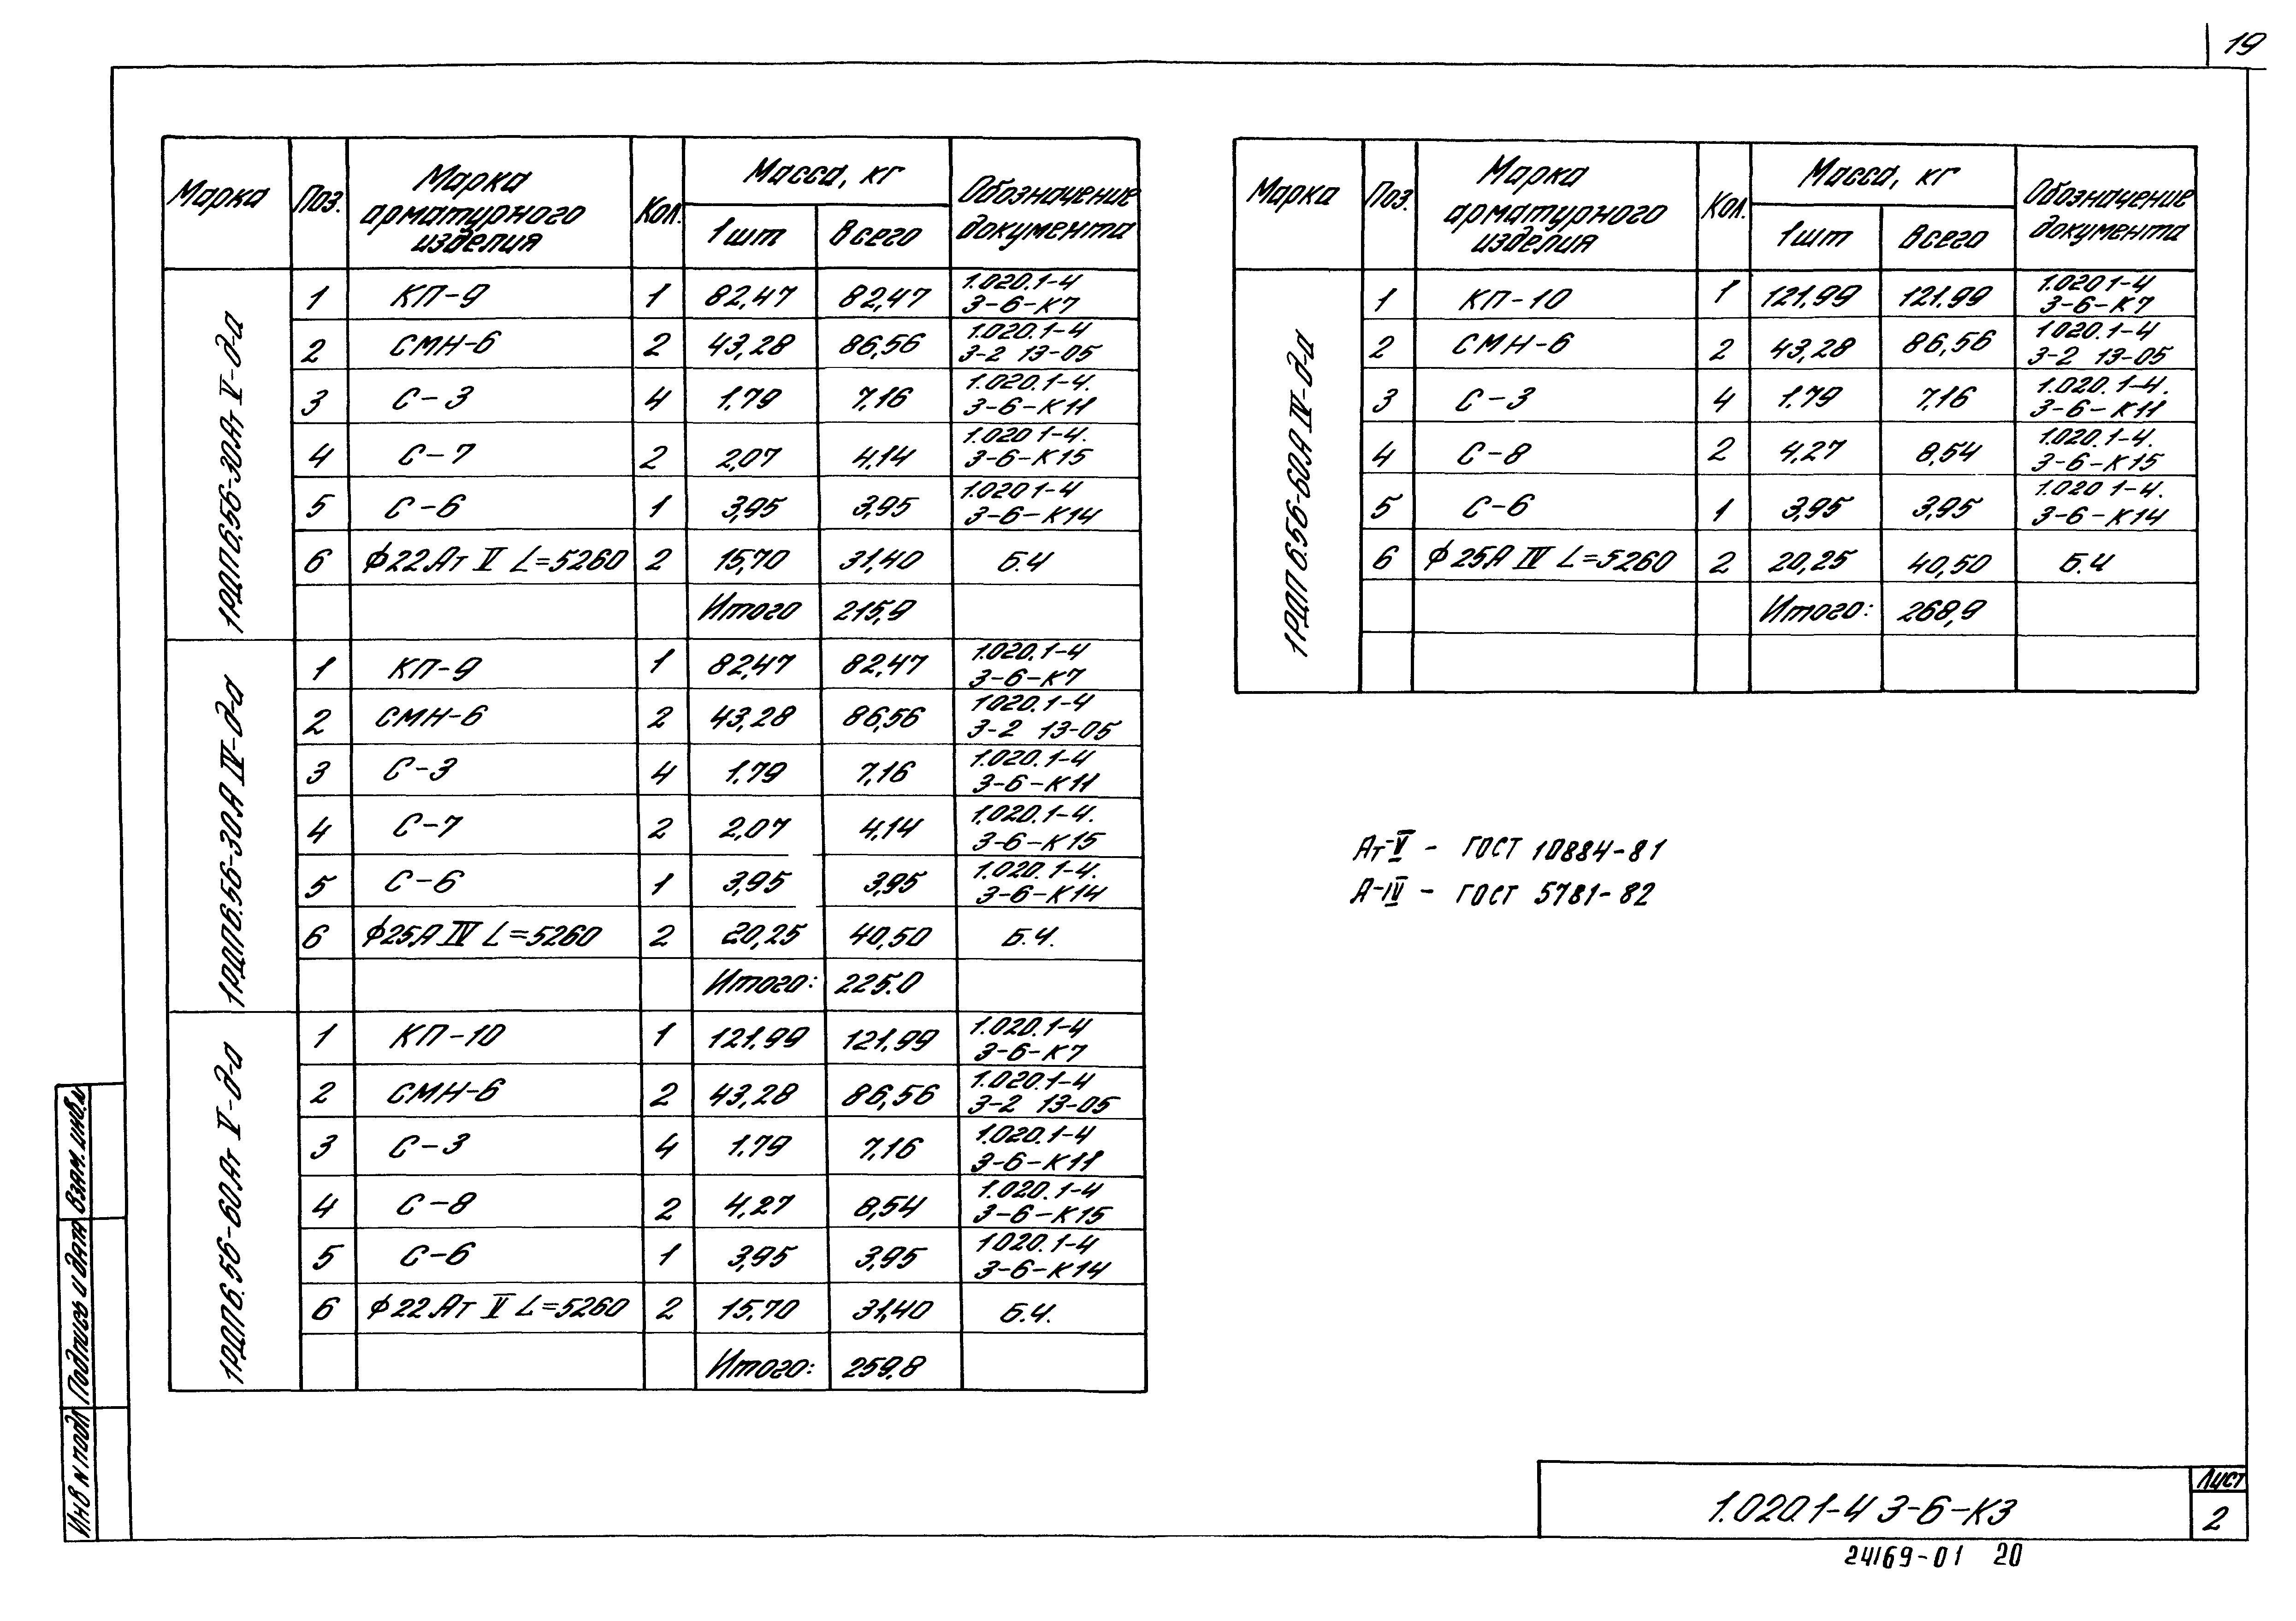 19
Марка Поз. Марка арматурного изделия Кол. Масса, кг Обозначение документа
1шт Всего
1РДП6.56-30Ат V-д-а
1 КП-9 1 82,47 82,47 1.020.1-4 3-6-К7
2 СМН-6 2 43,28 86,56 1.020.1-4 3-2 13-05
3 С-3 4 1.79 7,16 1.020.1-4. 3-6-К11
4 С-7 2 2,07 4,14 1.020 1-4. 3-6-К15
5 С-6 1 3,95 3,95 1.020 1-4 3-6-К14
6 ϕ22Ат V L=5260 2 15,70 31,40 Б.Ч
Итого 215,9
1РДП6.56-30А IV-д-а
1 КП-9 1 82,47 82,47 1.020.1-4 3-6-К7
2 СМН-6 2 43,28 86,56 1020.1-4 3-2 13-05
3 С-3 4 1.79 7,16 1.020.1-4 3-6-К11
4 С-7 2 2,07 4,14 1.020.1-4. 3-6-К15
5 С-6 1 3,95 3,95 1.020.1-4. 3-6-К14
6 ϕ25А IV L=5260 2 20,25 40,50 Б.Ч.
Итого: 225.0
1РДП6.56-60Ат V-д-а
1 КП-10 1 121,99 121,99 1.020.1-4 3-6-К7
2 СМН-6 2 43,28 86,56 1.020.1-4 3-2 13-05
3 С-3 4 1.79 7,16 1.020.1-4 3-6-К11
4 С-8 2 4,27 8,54 1.020.1-4 3-6-К15
5 С-6 1 3,95 3,95 1020.1-4 3-6-К14
6 ϕ22Ат V L=5260 2 15,70 31,40 Б.Ч.
Итого: 259,8
Марка Поз. Марка арматурного изделия Кол. Масса, кг Обозначение документа
1шт Всего
1РДП6.56-60А IV-д-а
1 КП-10 1 121.99 121.99 1.020 1-4 3-6-К7
2 СМН-6 2 43,28 86,56 1020.1-4 3-2 13-05
3 С-3 4 1.79 7,16 1.020.1-4. 3-6-К11
4 С-8 2 4,27 8,54 1.020.1-4. 3-6-К15
5 С-6 1 3,95 3,95 1.020 1-4. 3-6-К14
6 ϕ25А IV L=5260 2 20,25 40,50 Б.Ч
Итого: 268,9
Ат-V - ГОСТ 10884-81
А-IV - ГОСТ 5781-82
Инв N подл Подпись и дата Взам. инв.N
1.020.1-4 3-6-К3
Лист
2
24169-01 20